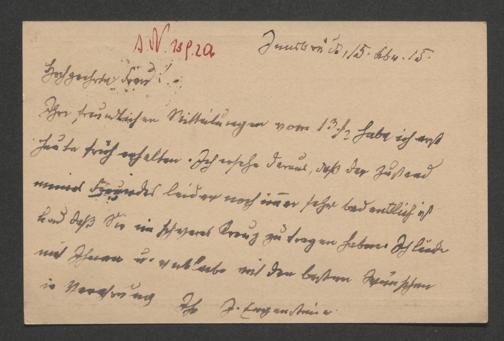 Innsbruck, 15. Febr. 15.
Hochgeehrte Frau!
Ihre freundlichen Mitteilungen vom 13./2 habe ich erst
heute früh erhalten. Ich ersehe daraus, daß der Zustand
meines Freundes leider noch immer sehr bedenklich ist
und daß Sie ein schweres Kreuz zu tragen haben. Ich leide
mit Ihnen u. verbleibe mit den besten Wünschen
in Verehrung Ihr